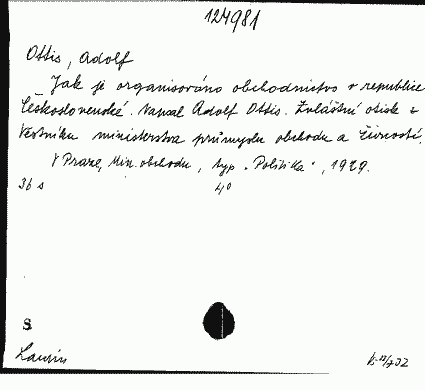 124981
Ottis, Adolf
Jak je organisováno obchodnictvo v republice
Československé. Napsal Adolf Ottis. Zvláštní otisk z
Věstníku ministerstva průmyslu obchodu a živností.
V Praze, Min. obchodu, typ. „Politika“, 1929.
36 s 4°
S
Laurin